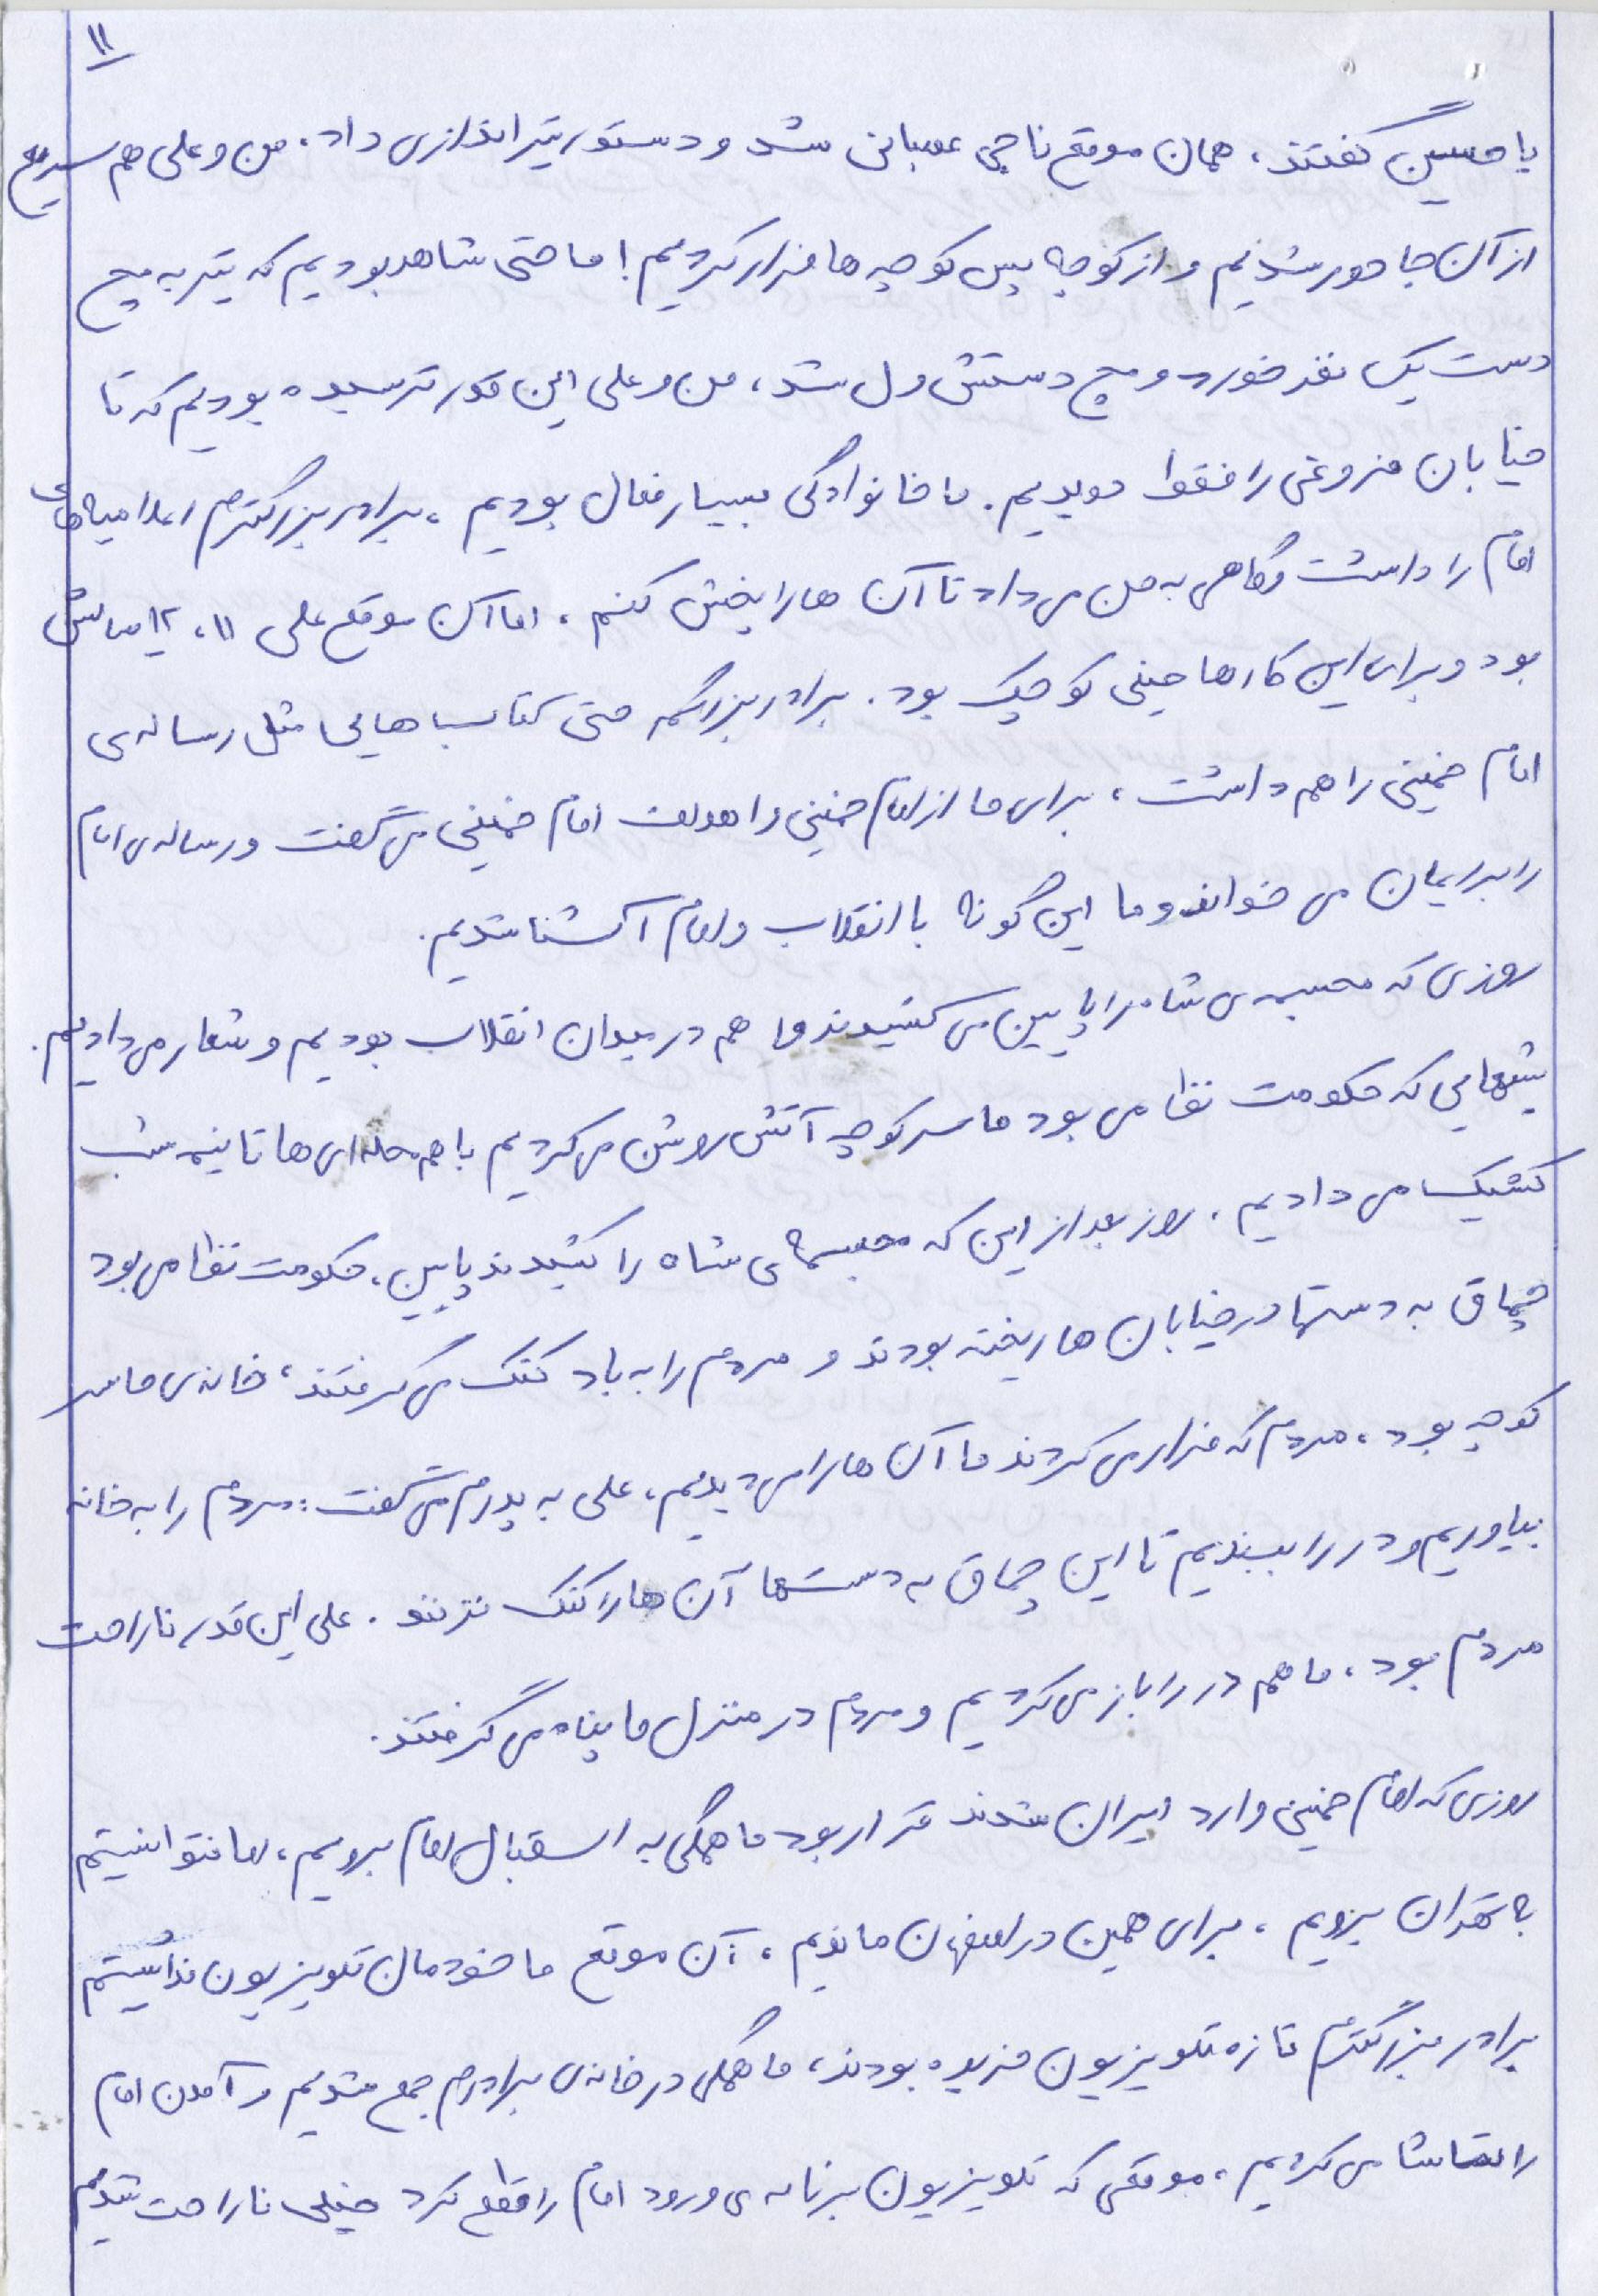 ۱۱
یا حسین گفتند، همان موقع ناجی عصبانی شد و دستور تیراندازی داد. من و علی هم سریع
از آن جا دور شدیم و از کوچه پس کوچه ها فرار کردیم! ما حتی شاهد بودیم که تیر به مچ
دست یک نفر خورد و مچ دستش ول شد، من و علی این قدر ترسیده بودیم که تا
خیابان فروغی را فقط دویدیم. ما خانوادگی بسیار فعال بودیم، برادر بزرگترم اعلامیه های
امام را داشت و گاهی به من می داد تا آن ها را پخش کنم. اما آن موقع علی ۱۱، ۱۲ سالش
بود و برای این کارها خیلی کوچک بود. برادر بزرگم حتی کتاب هایی مثل رساله ی
امام خمینی را هم داشت، برای ما از امام خمینی و اهداف امام خمینی می گفت و رساله ی امام
را برایمان می خواند و ما این گونه با انقلاب و امام آشنا شدیم.
روزی که مجسمه ی شاه را پایین می کشیدند ما هم در میدان انقلاب بودیم و شعار می دادیم.
شبهایی که حکومت نظامی بود ما سر کوچه آتش روشن می کردیم با هم محله ای ها تا نیمه شب
کشیک می دادیم. روز بعد از این که مجسمه ی شاه را کشیدند پایین، حکومت نظامی بود
چماق به دستها در خیابان ها ریخته بودند و مردم را به باد کتک می گرفتند، خانه ی ما سر
کوچه بود، مردم که فرار می کردند ما آن ها را می دیدیم، علی به پدرم می گفت: مردم را به خانه
بیاوریم و در را ببندیم تا این چماق به دستها آن ها را کتک نزنند. علی این قدر ناراحت
مردم بود، ما هم در را باز می کردیم و مردم در منزل ما پناه می گرفتند.
روزی که امام خمینی وارد ایران شدند قرار بود ما همگی به استقبال امام برویم، اما نتوانستیم
به تهران برویم، برای همین در اصفهان ماندیم، آن موقع ما خودمان تلویزیون نداشتیم
برادر بزرگترم تازه تلویزیون خریده بودند، ما همگی در خانه ی برادرم جمع شدیم و آمدن امام
را تماشا می کردیم، موقعی که تلویزیون برنامه ی ورود امام را قطع کرد خیلی ناراحت شدیم